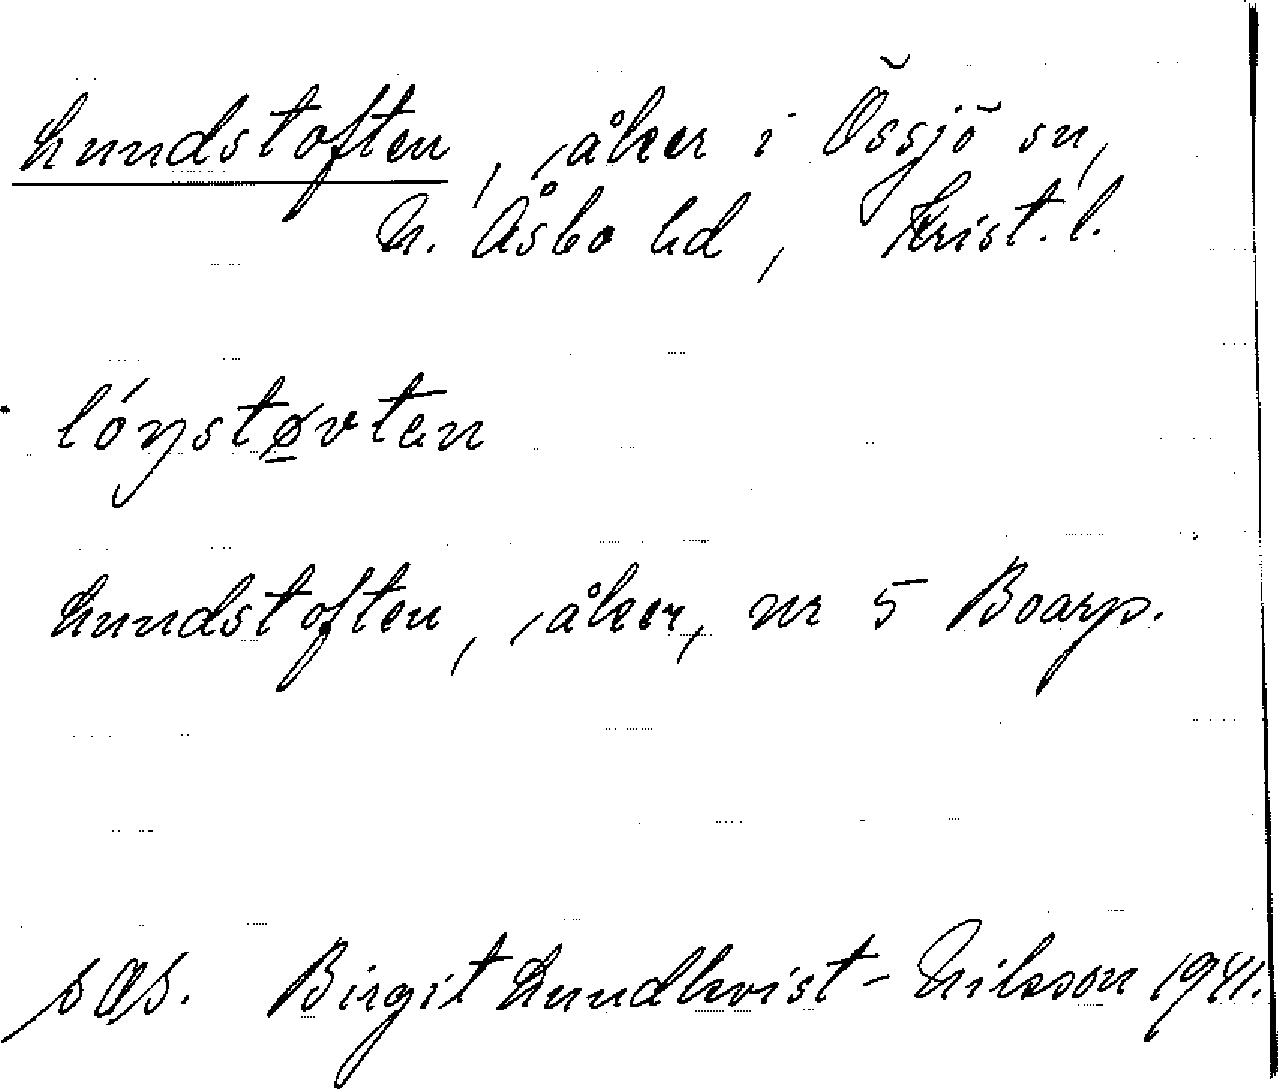 Lundstoften, åker i Össjö sn,
N. Åsbo hd, Krist. l.
lóŋstøvten
Lundstoften, åker, nr 5 Boarp.
s as. Birgit Lundkvist-Nilsson 1941.